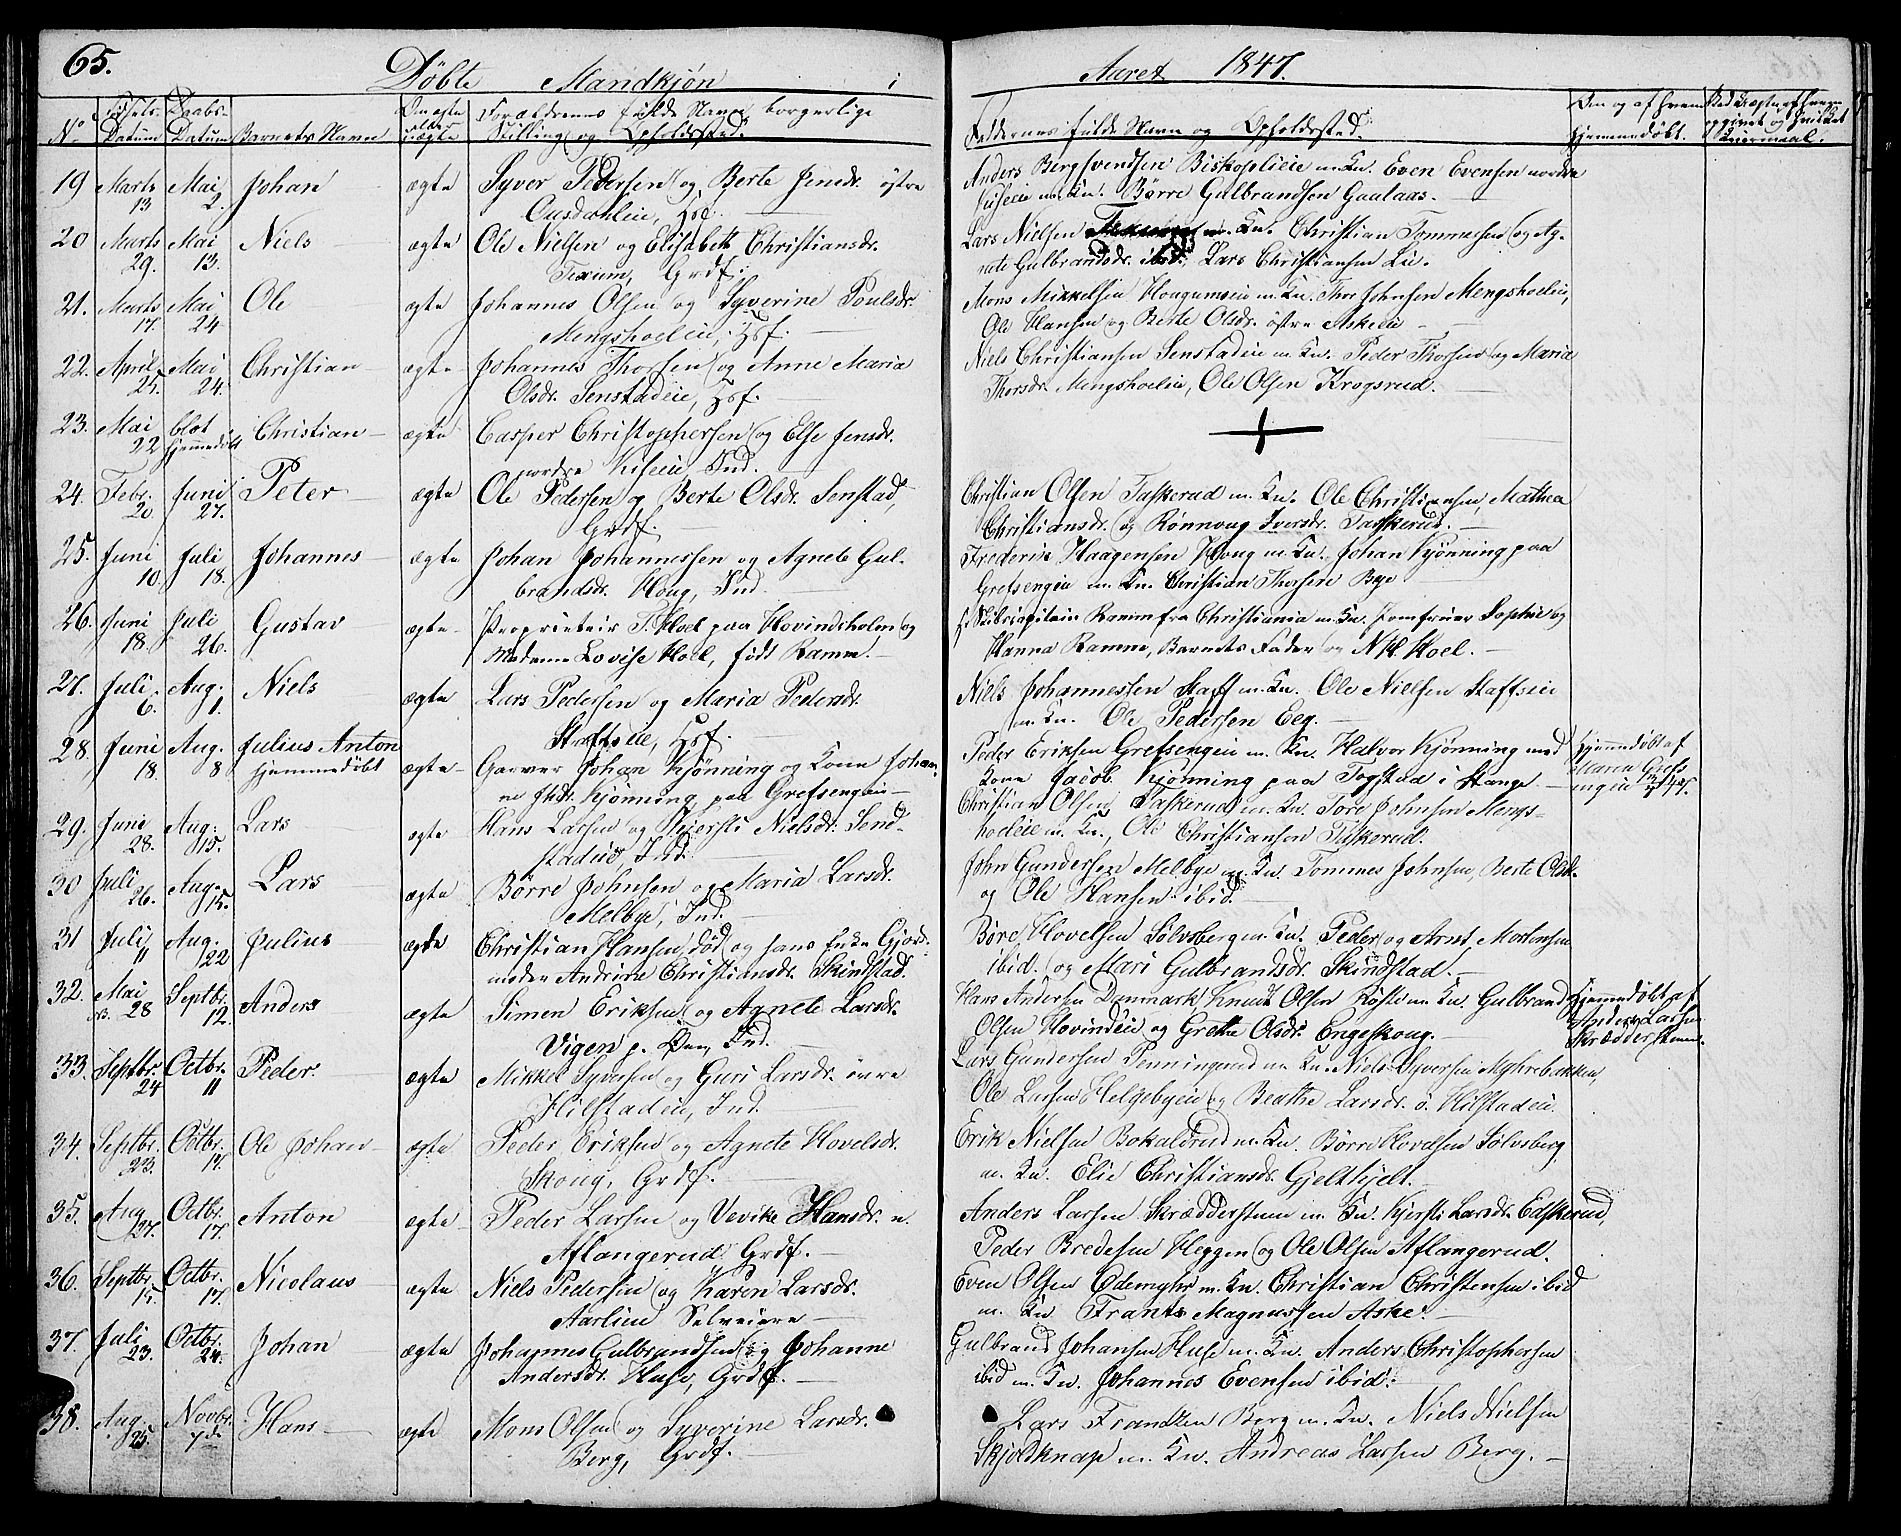 65.
Døbte Mandkjøn i Aaret 1847.
No Fødsels-Datum Daabs-Datum Barnets Navn Om ægte eller uægte Forældrenes fulde Navn, borgerlige Stilling og Opholdssted. Faddernes fulde Navn og Opholdssted. Om og af hvem hjemmedøbt.
19 Marts 13 Mai 2. Johan ægte Syver Pedersen og Berte Jensdr. østre
Hsf.
Anders Bergsvendsen Biskoplieie m. Kn. Even Evensen nordre
m. Kn. Børre Gulbrandsen Gaalaas.
20 Marts 29. Mai 13. Niels ægte Ole Nielsen og Elisabeth Christiansdr.
Texum, Grdf.
Lars Nielsen m. Kn. Christian Tommesen og Ag-
nete Gulbrandsdr. ibid., Lars Christiansen Lie.
21. Marts 17. Mai 24 Ole ægte Johannes Olsen og Syverine Poulsdr.
Mengshoeleie, Hsf.
Mons Mikkelsen Hougumseie m. Kn. Thor Johnsen Mengshoeleie,
Ole Hansen og Berte Olsdr. østre Askeie
22. April 25. Mai 24. Christian ægte Johannes Thorsen og Anne Maria
Olsdr. Senstadeie, Hsf.
Niels Christiansen Senstadeie m. Kn. Peder Thorsen og Maria
Thorsdr. Mengshoeleie, Ole Olsen Krogsrud.
23. Mai 22 blot hjemmedøbt Christian ægte Casper Christophersen og Else Jensdr.
nordre Kiseie, Ind.
24. Febr. 20. Juni 27. Peter ægte Ole Pedersen og Berte Olsdr. Senstad,
Grdf.
Christian Olsen Taskerud m. Kn. Ole Christiansen, Mathea
Christiansdr. og Rønnoug Iversdr. Taskerud.
25. Juni 10. Juli 18. Johannes ægte Johan Johannessen og Agnete Gul-
brandsdr. Houg, Ind.
Frederik Haagensen Houg m. Kn. Johan Kjønning paa
Grefsengeie m. Kn. Christian Thorsen Bye
26. Juni 18. Juli 26. Gustav ægte Proprietair T. Hoel paa Hovindsholm og
Madame Lovise Hoel, født Ramm.
Ramm fra Christiania m. Kn. Jomfruer Sophie og
Hanna Ramm, Barnets Fader og N. H. Hoel.
27. Juli 6. Aug. 1. Niels ægte Lars Pedersen og Maria Pedersdr.
Staffseie, Hsf.
Niels Johannessen Staff m. Kn. Ole Nielsen Staffseie
m. Kn. Ole Pedersen Eeg.
28. Juni 18. Aug. 8 Julius Anton hjemmedøbt ægte Garver Johan Kjønning og Kone Johan-
ne Kjønning paa Grefsengeie
Peder Eriksen Grefsengeie m. Kn. Halvor Kjønning med
Kone Jacob Kjønning paa Fogstad i Stange.
Hjemmedøbt af
Maren Grefs-
engeie
29. Juni 28. Aug. 15. Lars ægte Hans Larsen og Kjersti Nielsdr. Send-
stadeie, Ind.
Christian Olsen Taskerud m. Kn. Tore Johnsen Mengs-
hoeleie m. Kn., Ole Christiansen Taskerud.
30 Juli 26. Aug. 15. Lars ægte Børre Johnsen og Maria Larsdr.
Melbye, Ind.
John Gundersen Melbye m. Kn. Tommes Johnsen, Berte Olsdr.
og Ole Hansen ibid.
31 Juli 11 Aug. 22 Julius ægte Christian Hansen, død og hans Enke Gjord-
moder Andrine Christiansdr. Skindstad.
Børe Hovelsen Sølvsberg m. Kn. Peder og Arnt Mortensen
ibid. og Mari Gulbrandsdr. Skindstad.
32. Mai NB. 28 Septbr. 12. Anders ægte Simen Eriksen og Agnete Larsdr.
Vigen p. Øen, Ind.
Hans Andersen Danmark Knudt Olsen Røste m. Kn. Gulbrand
Olsen Hovindeie og Grethe Olsdr. Engeskoug.
Hjemmedøbt af
Anders Larsen
Skrædderstuen.
33. Septbr. 24 Octbr. 11 Peder ægte Mikkel Syversen og Guri Larsdr. øvre
Hilstadeie, Ind.
Lars Gundersen Penningrud m. Kn. Niels Syversen Myhrebakken,
Ole Larsen Helgebyeie og Beathe Larsdr. ø. Hilstadeie.
34. Septbr. 23. Octbr. 17. Ole Johan ægte Peder Eriksen og Agnete Hovelsdr.
Skoug, Grdf.
Erik Nielsen Bokaldrud m. Kn. Børre Hovelsen Sølvsberg
m. Kn. Elie Christiansdr. Gjeltkjelt.
35. Aug. 27. Octbr. 17. Anton ægte Peder Larsen og Vevike Hansdr. n.
Aflangerud Grdf.
Anders Larsen Skrædderstuen m. Kn. Kjersti Larsdr. Edskerud,
Peder Bredesen Heggen og Ole Olsen Aflangerud.
36. Septbr. 15. Octbr. 17. Nicolaus ægte Niels Pedersen og Karen Larsdr.
Aarlien Selveiere
Even Olsen Edemyhr m. Kn. Christian Christensen ibid
m. Kn Frants Magnussen Aske.
37. Juli 23. Octbr. 24. Johan ægte Johannes Gulbrandsen og Johanne
Andersdr. Huse, Grdf.
Gulbrand Johansen Huse m. Kn. Anders Christophersen
ibid m. Kn. Johannes Evensen ibid.
38. Aug. 25. Novbr. 7de Hans ægte Mons Olsen og Syverine Larsdr.
Berg, Grdf.
Lars Frandzen Berg m. Kn. Niels Nielsen
Skjoldknap m. Kn. Andreas Larsen Berg.